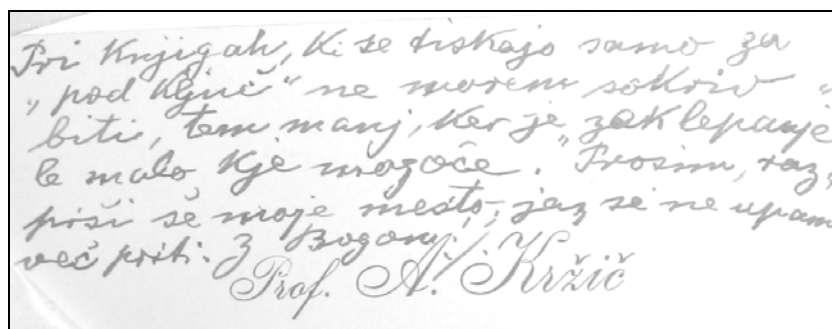 Pri knjigah, ki se tiskajo samo za
„pod ključ“ ne morem sokriv
biti, tem manj, ker je „zaklepanje
le malo kje mogoče.“ Prosim, raz„
piši še moje mesto; jaz si ne upam
več priti. Z Bogom!
Prof. A. Kržič